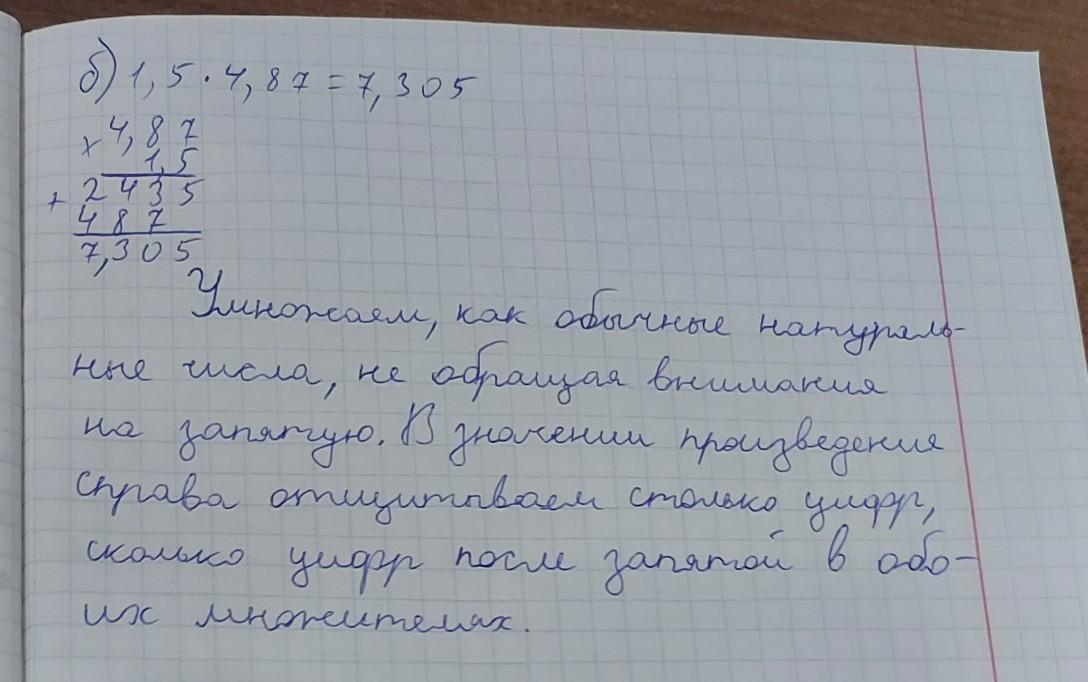 б) 1,5 · 4,87 = 7,305
× 4,87
1,5
+ 2435
487
7,305
Умножаем, как обычные натураль-
ные числа, не обращая внимания
на запятую. В значении произведения
справа отщитываем столько цифр,
сколько цифр после запятой в обо-
их множителях.